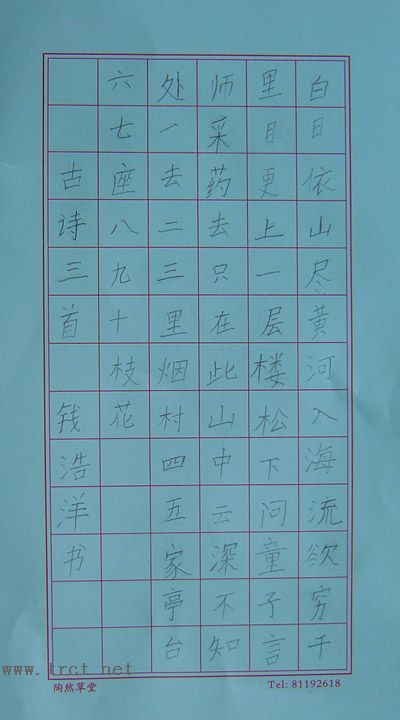 白日依山尽黄河入海流欲穷千
里目更上一层楼松下问童子言
师采药去只在此山中云深不知
处一去二三里烟村四五家亭台
六七座八九十枝花
古诗三首 钱浩洋书
www.trct.net
陶然草堂 Tel: 81192618